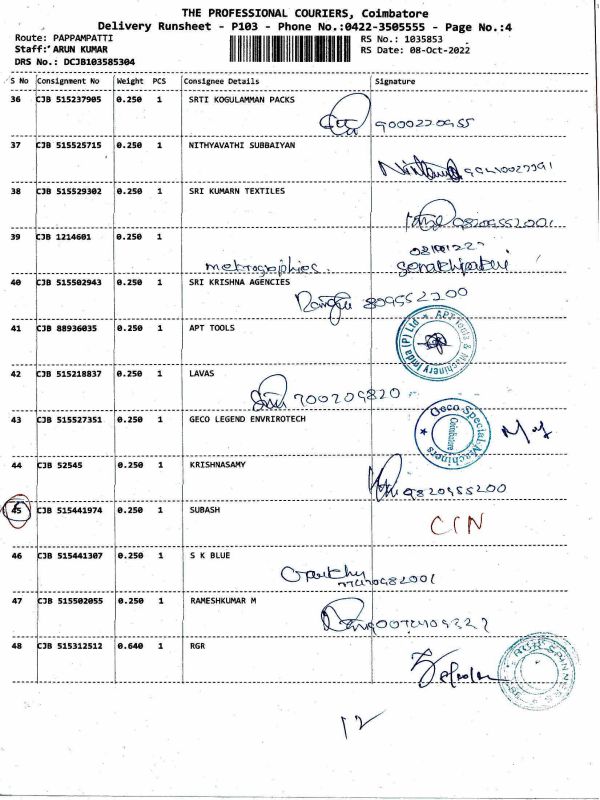 THE PROFESSIONAL COURIERS, Coimbatore
Delivery Runsheet - P103 - Phone No.:0422-3505555 - Page No.:4
Route: PAPPAMPATTI RS No.: 1035853
Staff: ARUN KUMAR RS Date: 08-Oct-2022
DRS No.: DCJB103585304
S No Consignment No Weight PCS Consignee Details Signature
36 CJB 515237905 0.250 1 SRTI KOGULAMMAN PACKS
9000220955
37 CJB 515525715 0.250 1 NITHYAVATHI SUBBAIYAN
38 CJB 515529302 0.250 1 SRI KUMARN TEXTILES
98209552001
39 CJB 1214601 0.250 1
metrographics.
40 CJB 515502943 0.250 1 SRI KRISHNA AGENCIES
809552200
41 CJB 88936035 0.250 1 APT TOOLS
APT Tools & Machinery India (P) Ltd
42 CJB 515218837 0.250 1 LAVAS
700209820
43 CJB 515527351 0.250 1 GECO LEGEND ENVRIROTECH
Geco Special Machiners
Coimbatore
44 CJB 52545 0.250 1 KRISHNASAMY
9820955200
45 CJB 515441974 0.250 1 SUBASH
CIN
46 CJB 515441307 0.250 1 S K BLUE
47 CJB 515502055 0.250 1 RAMESHKUMAR M
48 CJB 515312512 0.640 1 RGR
RGR SPINNERS
12